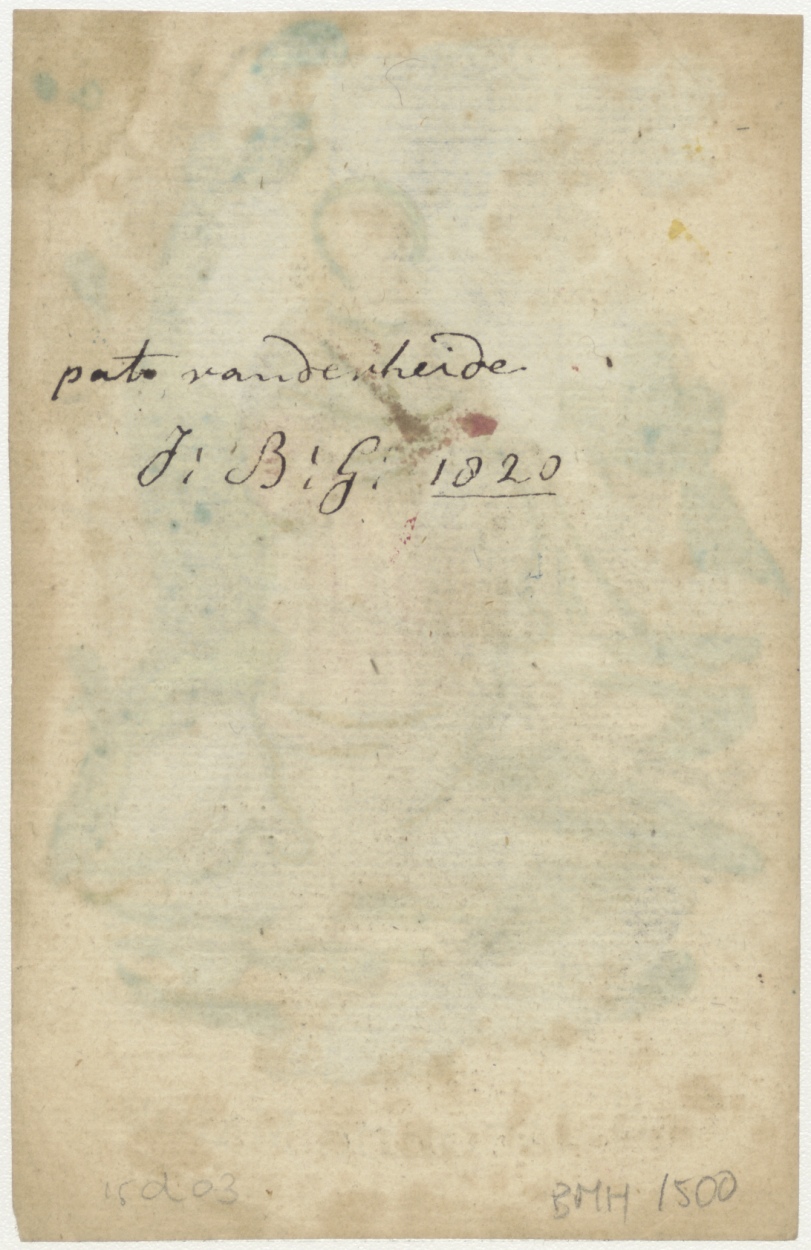 pat vanderheide
J: B: G: 1820
15d03
BMH 1500